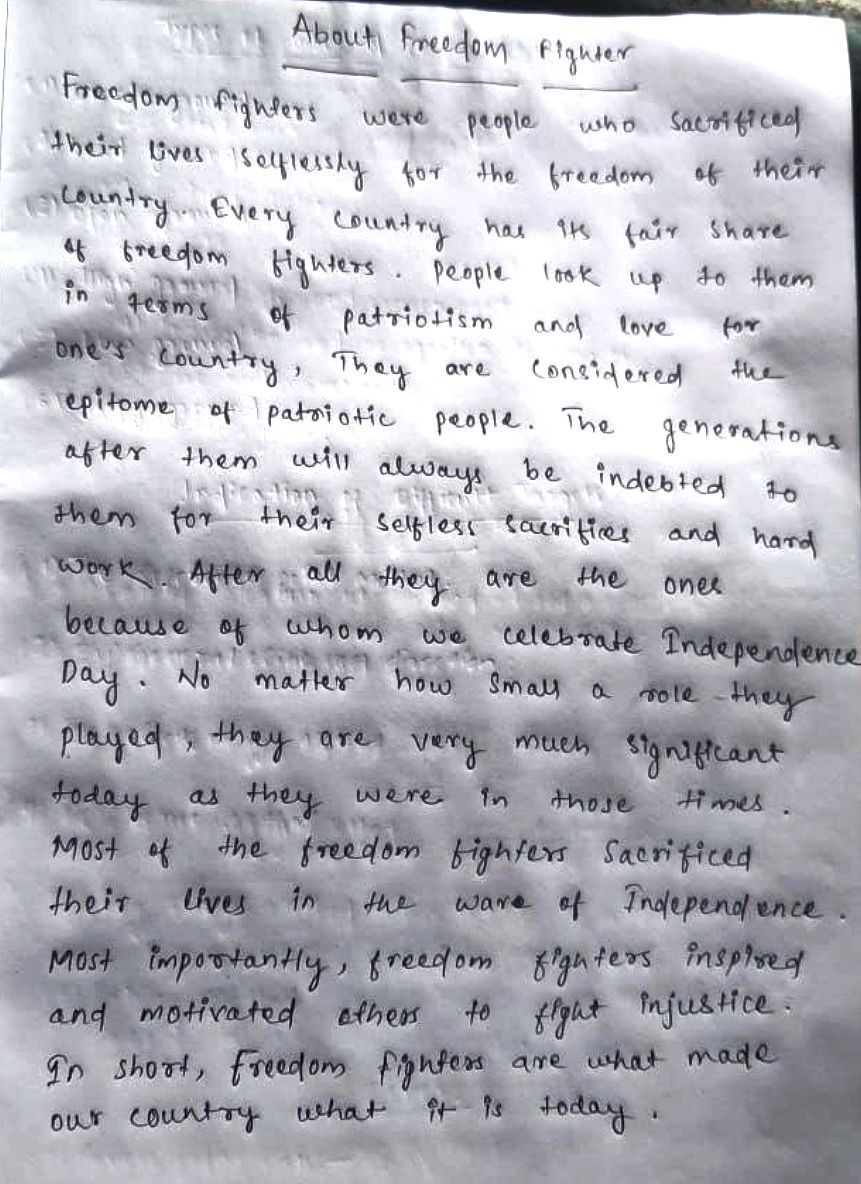 About Freedom Fighter
Freedom fighters were people who sacrificed
their lives selflessly for the freedom of their
Country. Every country has its fair share
of freedom fighters. People look up to them
in terms of patriotism and love for
one's country, They are considered the
epitome of patriotic people. The generations
after them will always be indebted to
them for their selfless sacrifices and hard
work. After all they are the ones
because of whom we celebrate Independence
Day. No matter how small a role they
played, they are very much significant
today as they were in those times.
Most of the freedom fighters sacrificed
their lives in the ware of Independence.
Most importantly, freedom fighters inspired
and motivated others to fight injustice.
In short, freedom fighters are what made
our country what it is today.